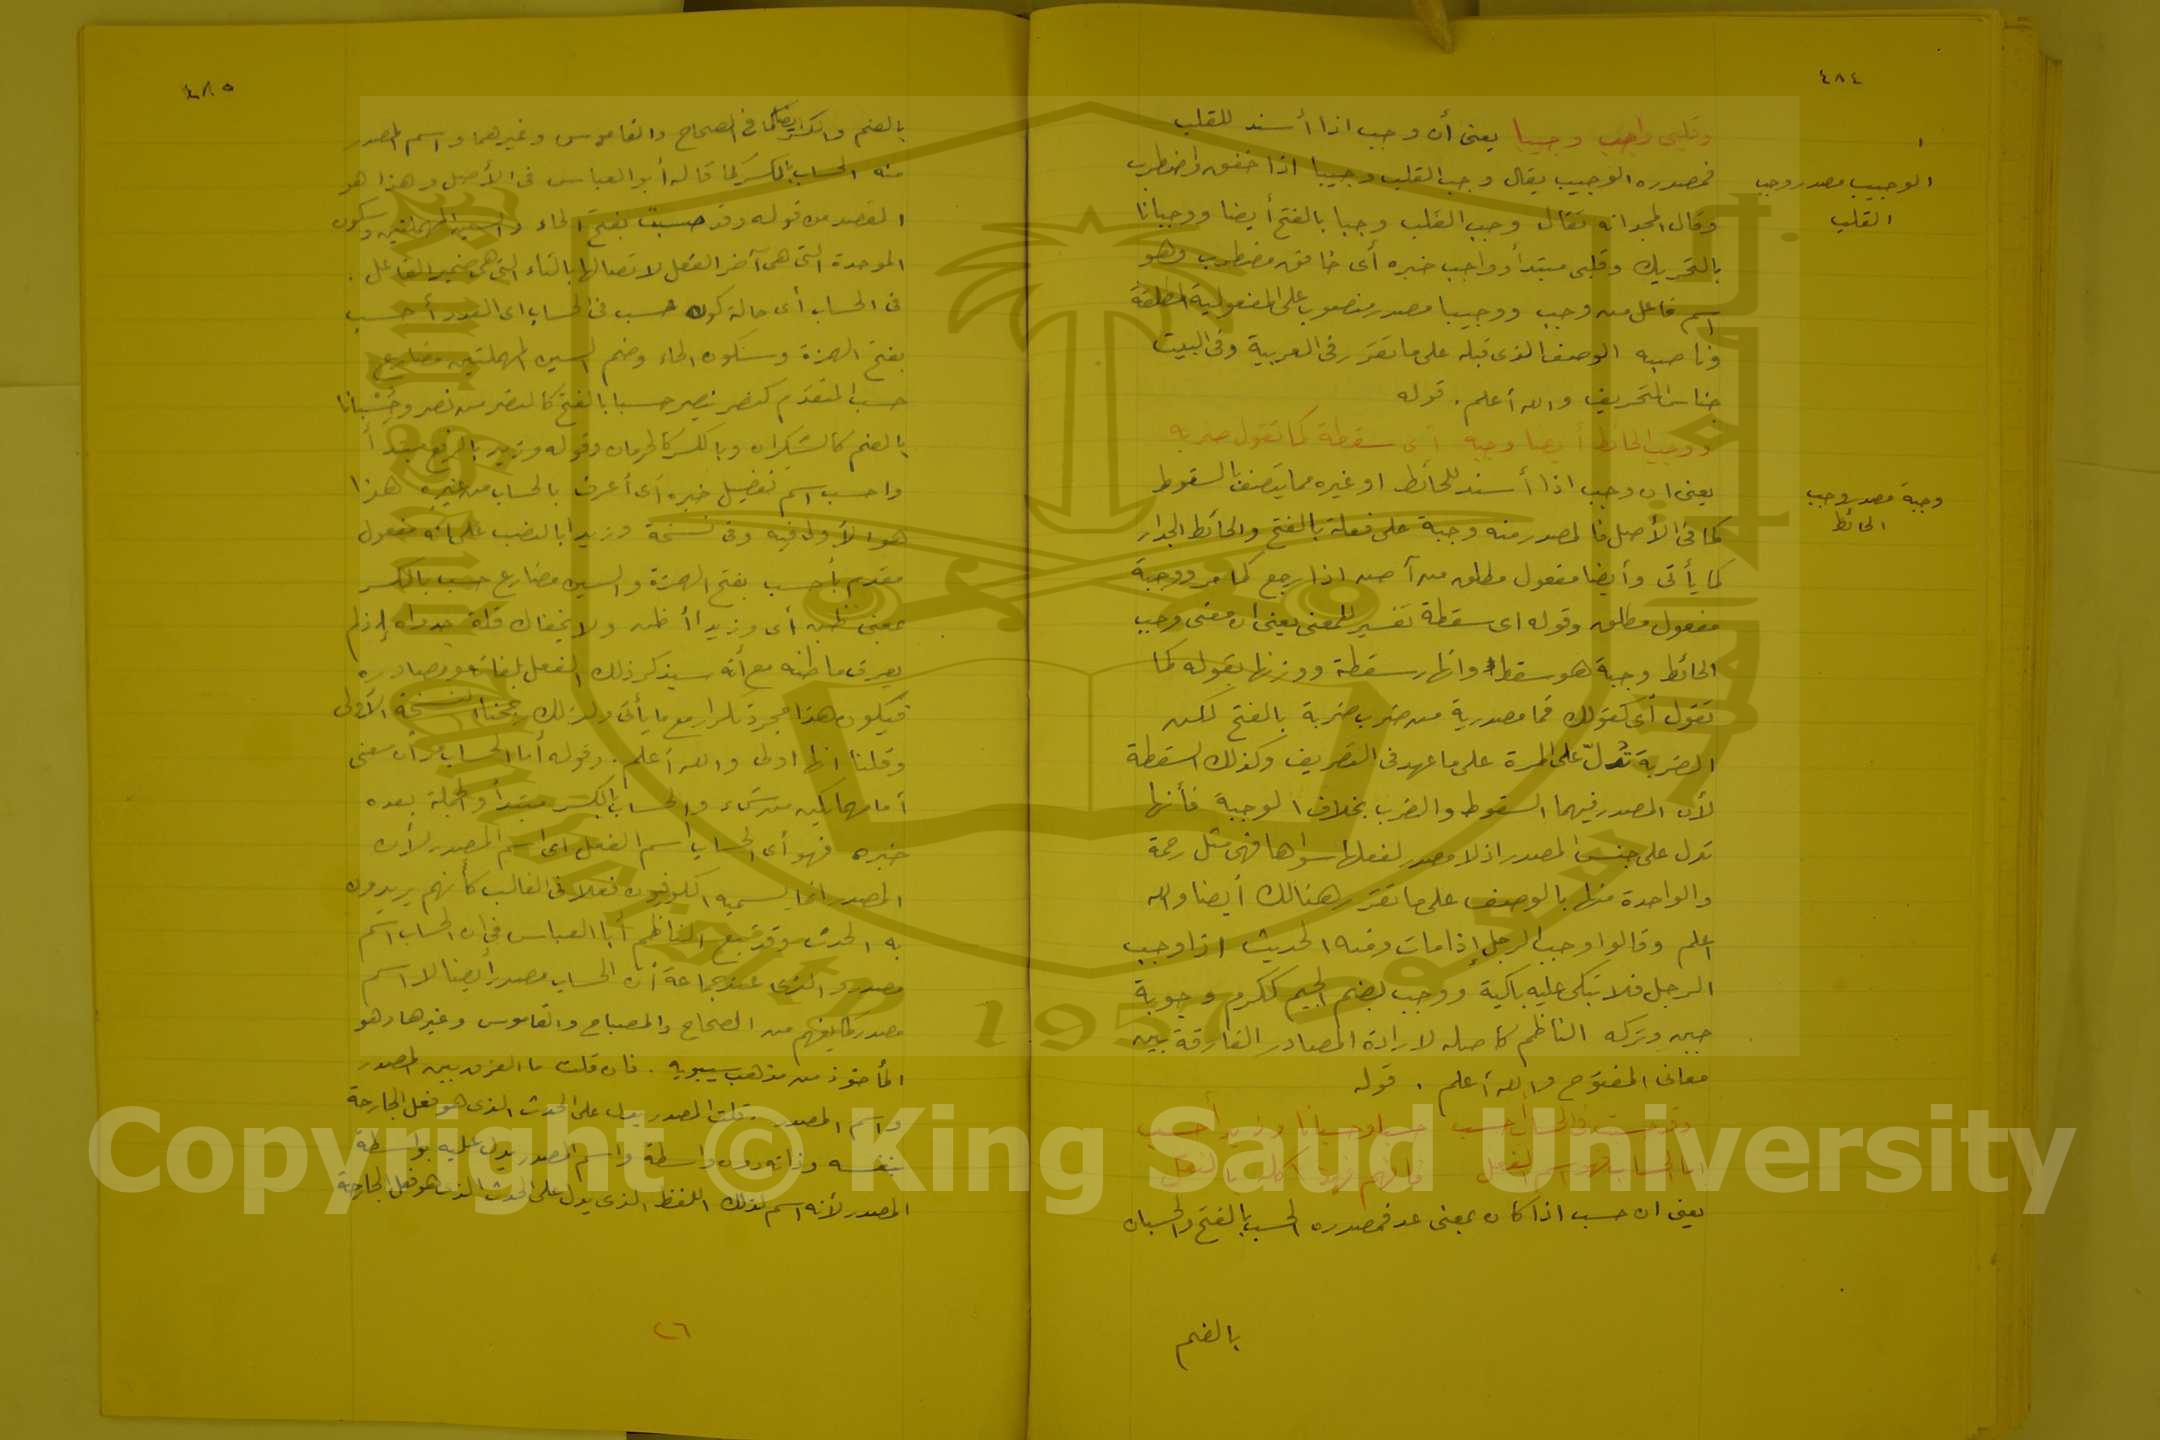 ٤٨٤
وقلبي واجب وجيبا يعنى أن وجب اذا أسند للقلب
فمصدره الوجيب يقال وجب القلب وجيبا اذا خفق واضطرب
الوجيب مصدر وجب
القلب
وقال المجد انه تقال وجب القلب وجبا بالفتح أيضا ووجبانا
بالتحريك وقلبى مبتدأ وواجب خبره أى خافق مضطرب وهو
اسم فاعل من وجب ووجيبا مصدر منصوب على المفعولية المطلقة
وناصبه الوصف الذى قبله على ما تقرر فى العربية وفى البيت
جناس التحريف والله أعلم . قوله
ووجب الحائط أيضا وجبه أى سقطة كما تقول ضربه
يعنى ان وجب اذا أسند للحائط او غيره مما يتصف بالسقوط
وجبة مصدر وجب
الحائط
كما فى الأصل فالمصدر منه وجبة على فعلة بالفتح والحائط الجدار
كما يأتى وأيضا مفعول مطلق من آض اذا رجع كما مر ووجبة
مفعول مطلق وقوله اى سقطة تفسير للمعنى يعنى ان معنى وجب
الحائط وجبة هو سقط وانهار سقطة ووزنها بقوله كما
تقول أى كقولك فما مصدرية من ضرب ضربة بالفتح لكن
الضربة تدلّ على المرة على ما عهد فى التصريف وكذلك السقطة
لأن المصدر فيهما السقوط والضرب بخلاف الوجبة فأنها
تدل على جنس المصدر اذ لا مصدر لفعلها سواها فهى مثل رحمة
والواحدة منها بالوصف على ما تقرر هنالك أيضا والله
اعلم وقالوا وجب الرجل إذا مات ومنه الحديث اذا وجب
الرجل فلا تبكى عليه باكية ووجب بضم الجيم ككرم وجوبة
جبن وتركه الناظم كأصله لارادة المصادر الفارقة بين
معانى المفتوح والله أعلم . قوله
وقد حسبت فى الحساب أحسب حسبا وحسبانا وزيد أحسب
اما الحساب فهو اسم الفعل فافهم فهذا كله بالنقل
يعنى ان حسب اذا كان بمعنى عد فمصدره الحسب بالفتح والحسبان
بالضم
٤٨٥
بالضم والكسر أيضا كما فى الصحاح والقاموس وغيرهما واسم المصدر
منه الحساب بالكسر كما قاله أبو العباس فى الأصل وهذا هو
القصد من قوله وقد حسبت بفتح الحاء والسين المهملتين وسكون
الموحدة التى هى آخر الفعل لاتصالها بالتاء التى هى ضمير الفاعل .
فى الحساب أى حالة كون حسب فى الحساب اى العدد أحسب
بفتح الهمزة وسكون الحاء وضم السين المهملتين مضارع
حسب المتقدم كنصر ينصر حسبا بالفتح كالنصر من نصر وحُسْبانا
بالضم كالشكران وبالكسر كالحرمان وقوله وزيد بالرفع مبتدأ
واحسب اسم تفضيل خبره أى أعرف بالحساب من غيره هذا
هو الأولى فيه وفى نسخة وزيدا بالنصب على انه مفعول
مقدم بأحسب بفتح الهمزة والسين مضارع حسب بالكسر
بمعنى ظن أى وزيدا أظن ولا يخفاك قلة جدواه إذ لم
يعرف ما ظنه مع أنه سيذكر ذلك الفعل بلغاته ومصادره
فيكون هذا مجرد تكرار مع ما يأتى ولذلك رجحنا النسخة الأولى
وقلنا انها اولى والله أعلم . وقوله أما الحساب مر أن معنى
أما مهما يكن من شىء والحساب بالكسر مبتدأ والجملة بعده
خبره فهو أى الحساب اسم الفعل اى اسم المصدر لأن
المصدر انما يسميه الكوفيون فعلا فى الغالب كأنهم يريدون
به الحدث وقد تبع الناظم أبا العباس فى ان الحساب اسم
مصدر والذى عند جماعة أن الحساب مصدر أيضا لا اسم
مصدر كما يفهم من الصحاح والمصباح والقاموس وغيرها وهو
المأخوذ من مذهب سيبويه . فان قلت ما الفرق بين المصدر
واسم المصدر . قلت المصدر يدل على الحدث الذى هو فعل الجارحة
بنفسه وذاته دون واسطة واسم المصدر يدل عليه بواسطة
المصدر لأنه اسم لذلك اللفظ الذى يدل على الحدث الذى هو فعل الجارحة
٢٦
Copyright © King Saud University
1957